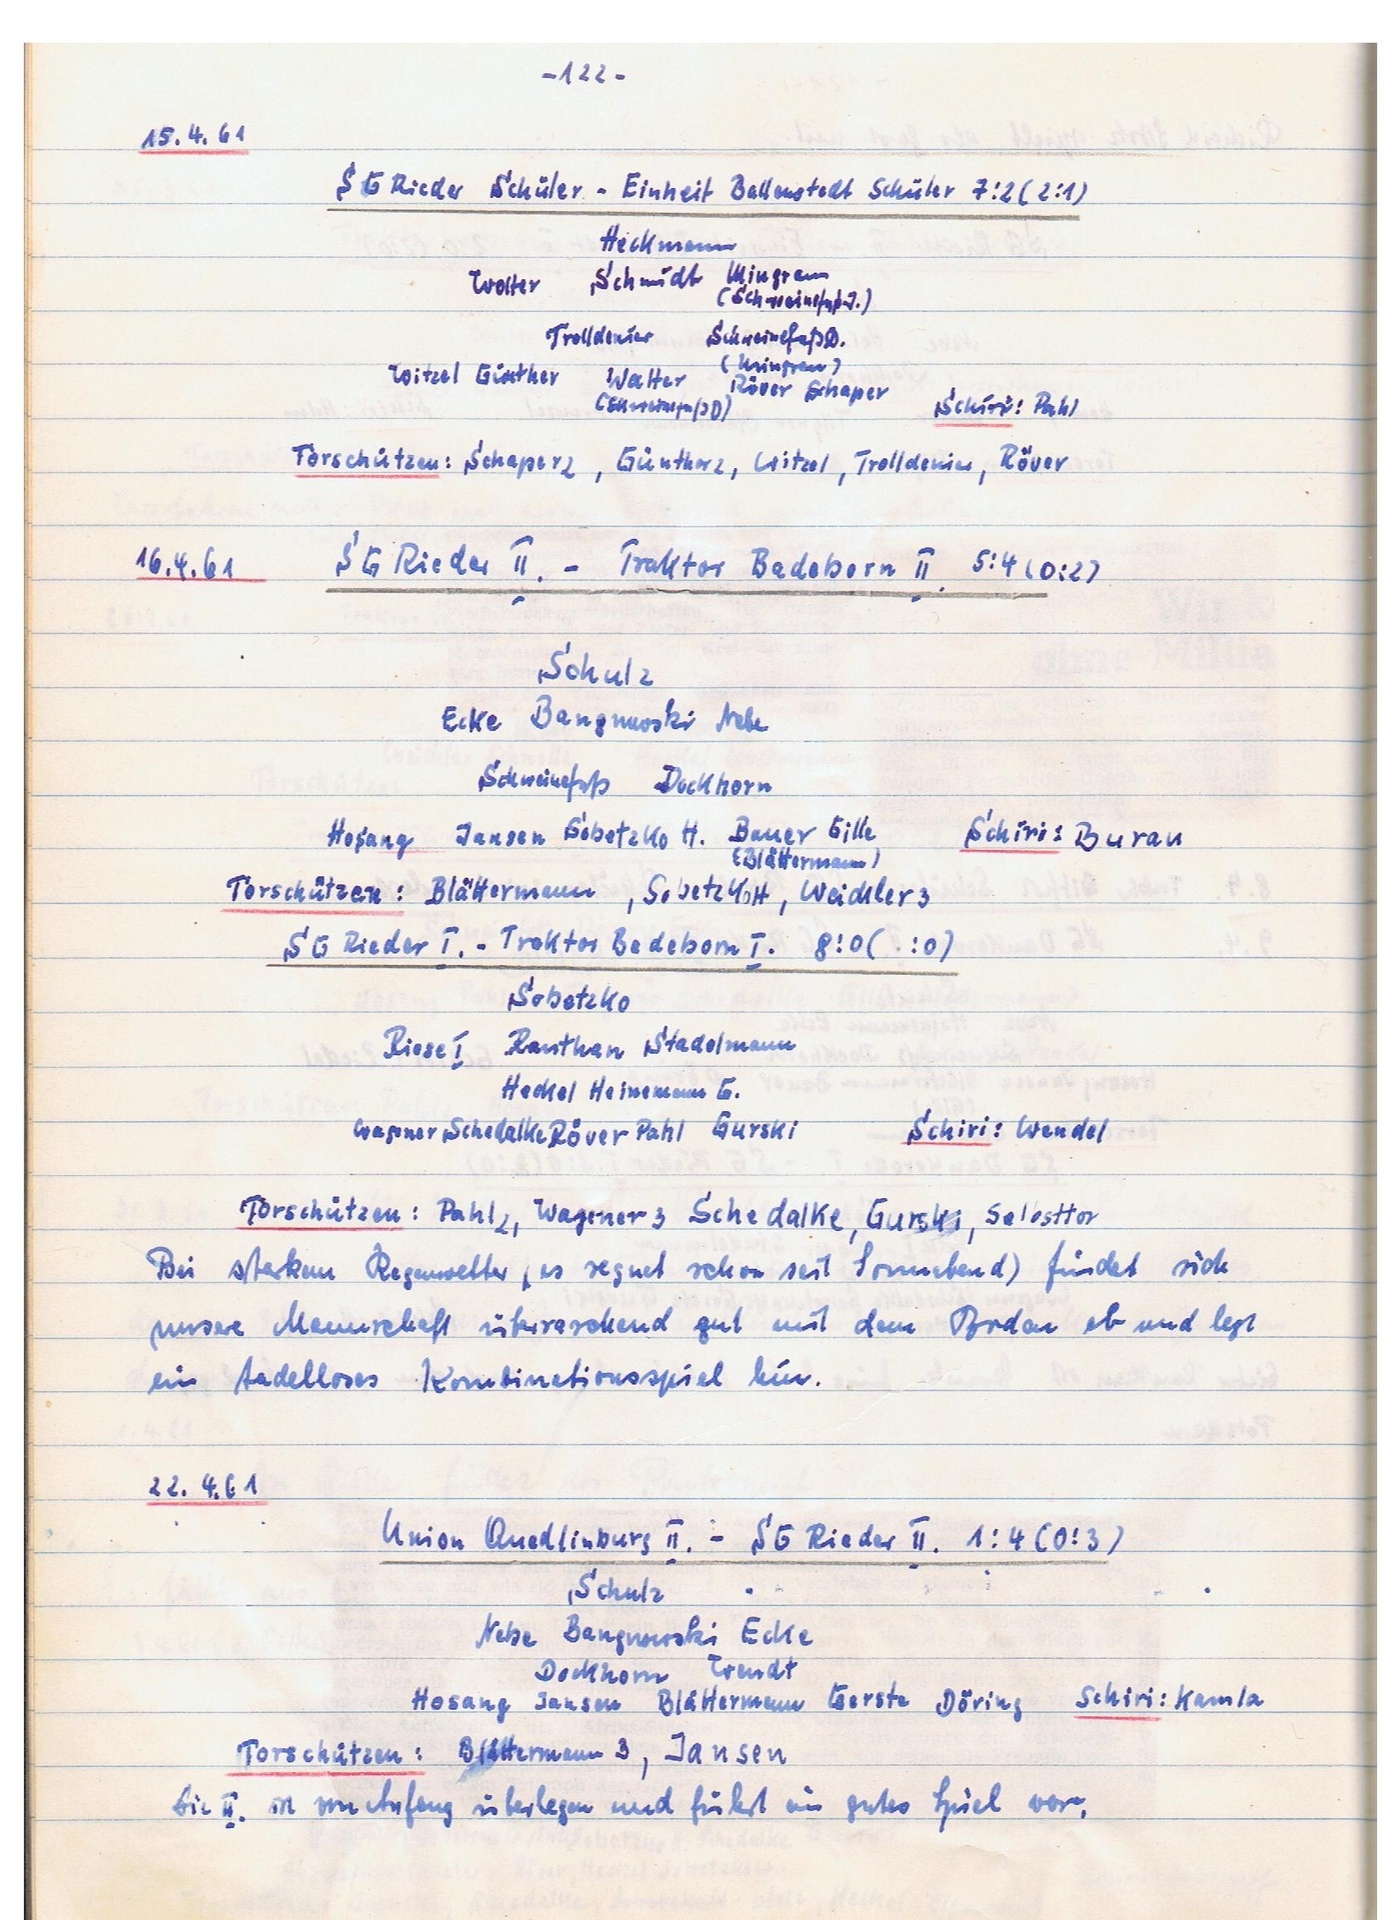 -122-
15.4.61
SG Rieder Schüler - Einheit Ballenstedt Schüler 7:2 (2:1)
Heckmann
Wolter Schmidt Mingram
(Schweinefuß J.)
Trolldenier Schweinefuß D.
(Mingram)
Witzel Günther Walter Röver Schaper
(Schweinefuß D) Schiri: Pahl
Torschützen: Schaper 2, Günther 2, Witzel, Trolldenier, Röver
16.4.61 SG Rieder II. - Traktor Badeborn II. 5:4 (0:2)
Schulz
Ecke Bangnowski Nebe
Schweinefuß Dockhorn
Hosang Jansen Sobetzko H. Bauer Gille Schiri: Buran
(Blättermann)
Torschützen: Blättermann, Sobetzko H, Weidler 3
SG Rieder I. - Traktor Badeborn I. 8:0 ( :0)
Sobetzko
Riese I Ranthan Stadelmann
Heckel Heinemann G.
Wagener Schedalke Röver Pahl Gurski Schiri: Wendel
Torschützen: Pahl 2, Wagener 3 Schedalke, Gurski, Selbsttor
Bei starkem Regenwetter (es regnet schon seit Sonnabend) findet sich
unsere Mannschaft überraschend gut mit dem Boden ab und legt
ein tadelloses Kombinationsspiel hin.
22.4.61
Union Quedlinburg II. - SG Rieder II. 1:4 (0:3)
Schulz
Nebe Bangnowski Ecke
Dockhorn Wendt
Hosang Jansen Blättermann Gerste Döring Schiri: Kamla
Torschützen: Blättermann 3, Jansen
Die II. ist von Anfang überlegen und führt ein gutes Spiel vor.